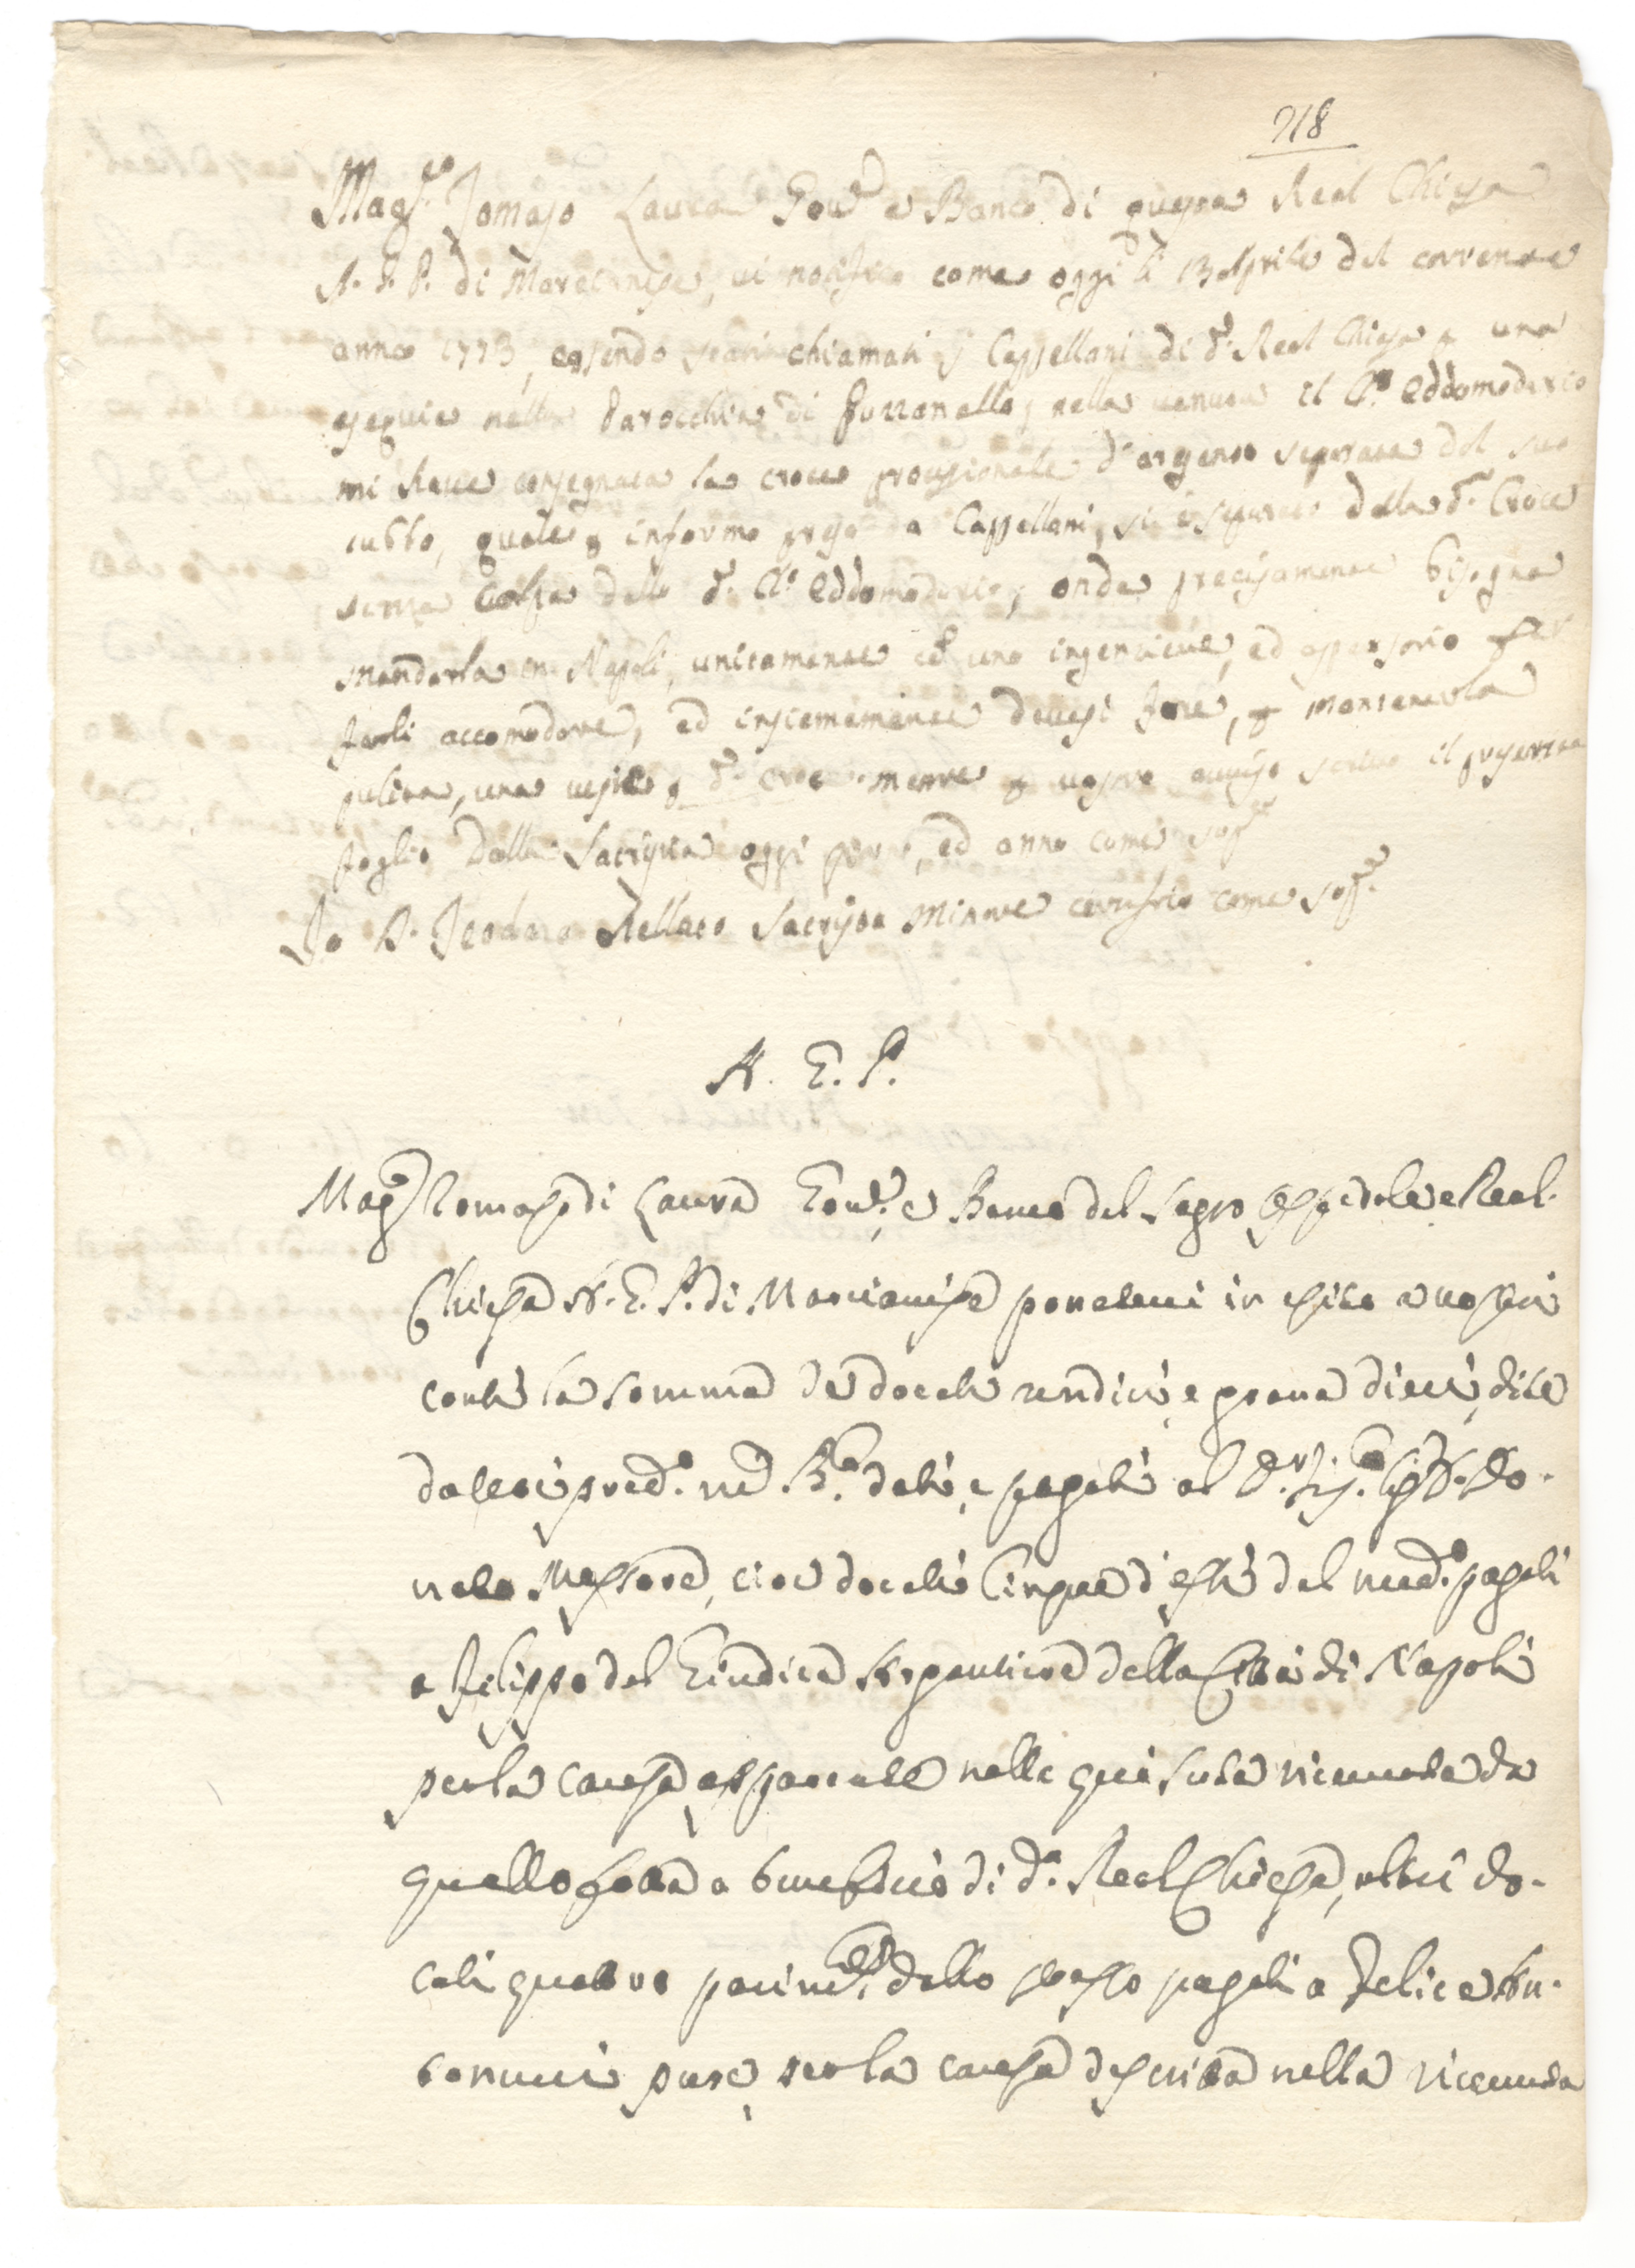 218
Mag.co Tomaso Laura Gov.re e Banco di questa Real Chiesa
A. G. P. di Marcianise, vi notifico come oggi li 13 Aprile del corrente
anno 1773, essendo stati chiamati i Cappellani di d.a Real Chiesa p una
esequie nella Parocchia di, nella venuta il Edomodario
mi have consegnata la croce processionale d'argento separata dal suo
tubbo, quale p informo preso da Cappellani, si è separato dalla d.a Croce
senza colpa dello d.o Eddomodario, onde precisamente bisogna
mandarla in Napoli, unitamente ad uno ingenziere, ed aspersorio per
farli accomodare, ed insiememente devesi fare, p mantenerla
pulita, una veste p d.a croce mentre p vostro avviso scrivo il presente
foglio dalla Sacristia oggi ed anno come sop.a
Io D. Teodoro Stellato Sacrista Minore certifico come sop.a
A. G. P.
Mag.co Tomaso di Laura Gov.re e Banco del Sagro Ospedale e Real
Chiesa A. G. P. di Marcianise ponetevi in esito a vostri
conti la somma de docati undici, e grana dieci, dite
da levi pred.o dati, e pagati al D.r Do-
nato Messore, cioè docati cinque d'essi dal med.o pagati
a Filippo del Giudice Argentiere della Città di Napoli
per la causa espressate nelle qui sute ricevute da
quello fatta a beneficio di d.a Real Chiesa, altri do-
cati quattro parim.ti dallo stesso pagati a Felice An-
tonucci pure per la causa descritta nella ricevuta